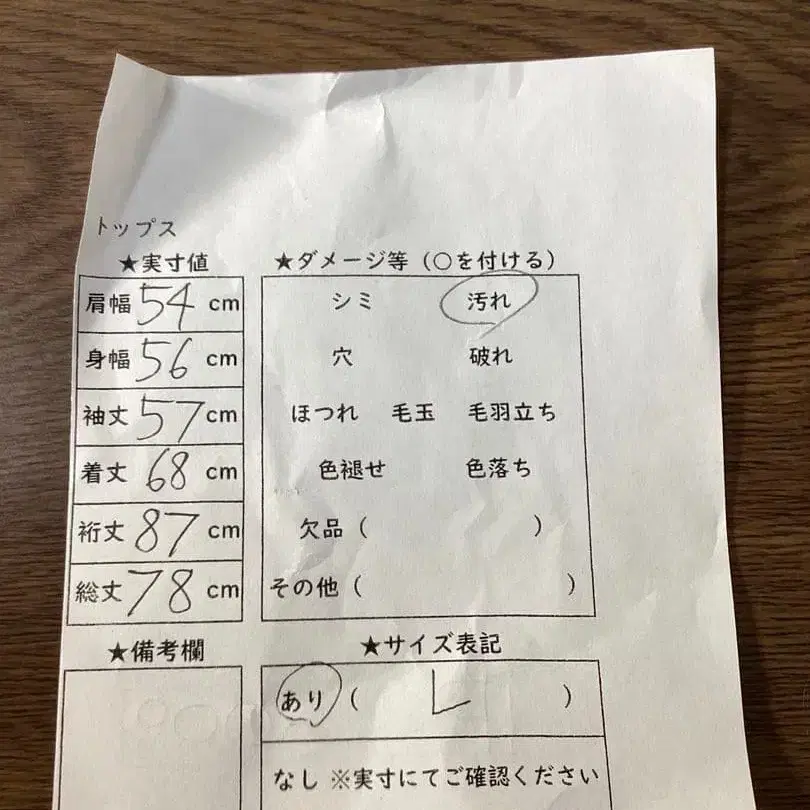 トップス
★実寸値
肩幅 54 cm
身幅 56 cm
袖丈 57 cm
着丈 68 cm
裄丈 87 cm
総丈 78 cm
★ダメージ等（○を付ける）
シミ 汚れ
穴 破れ
ほつれ 毛玉 毛羽立ち
色褪せ 色落ち
欠品（ ）
その他（ ）
★備考欄
★サイズ表記
あり（ L ）
なし ※実寸にてご確認ください